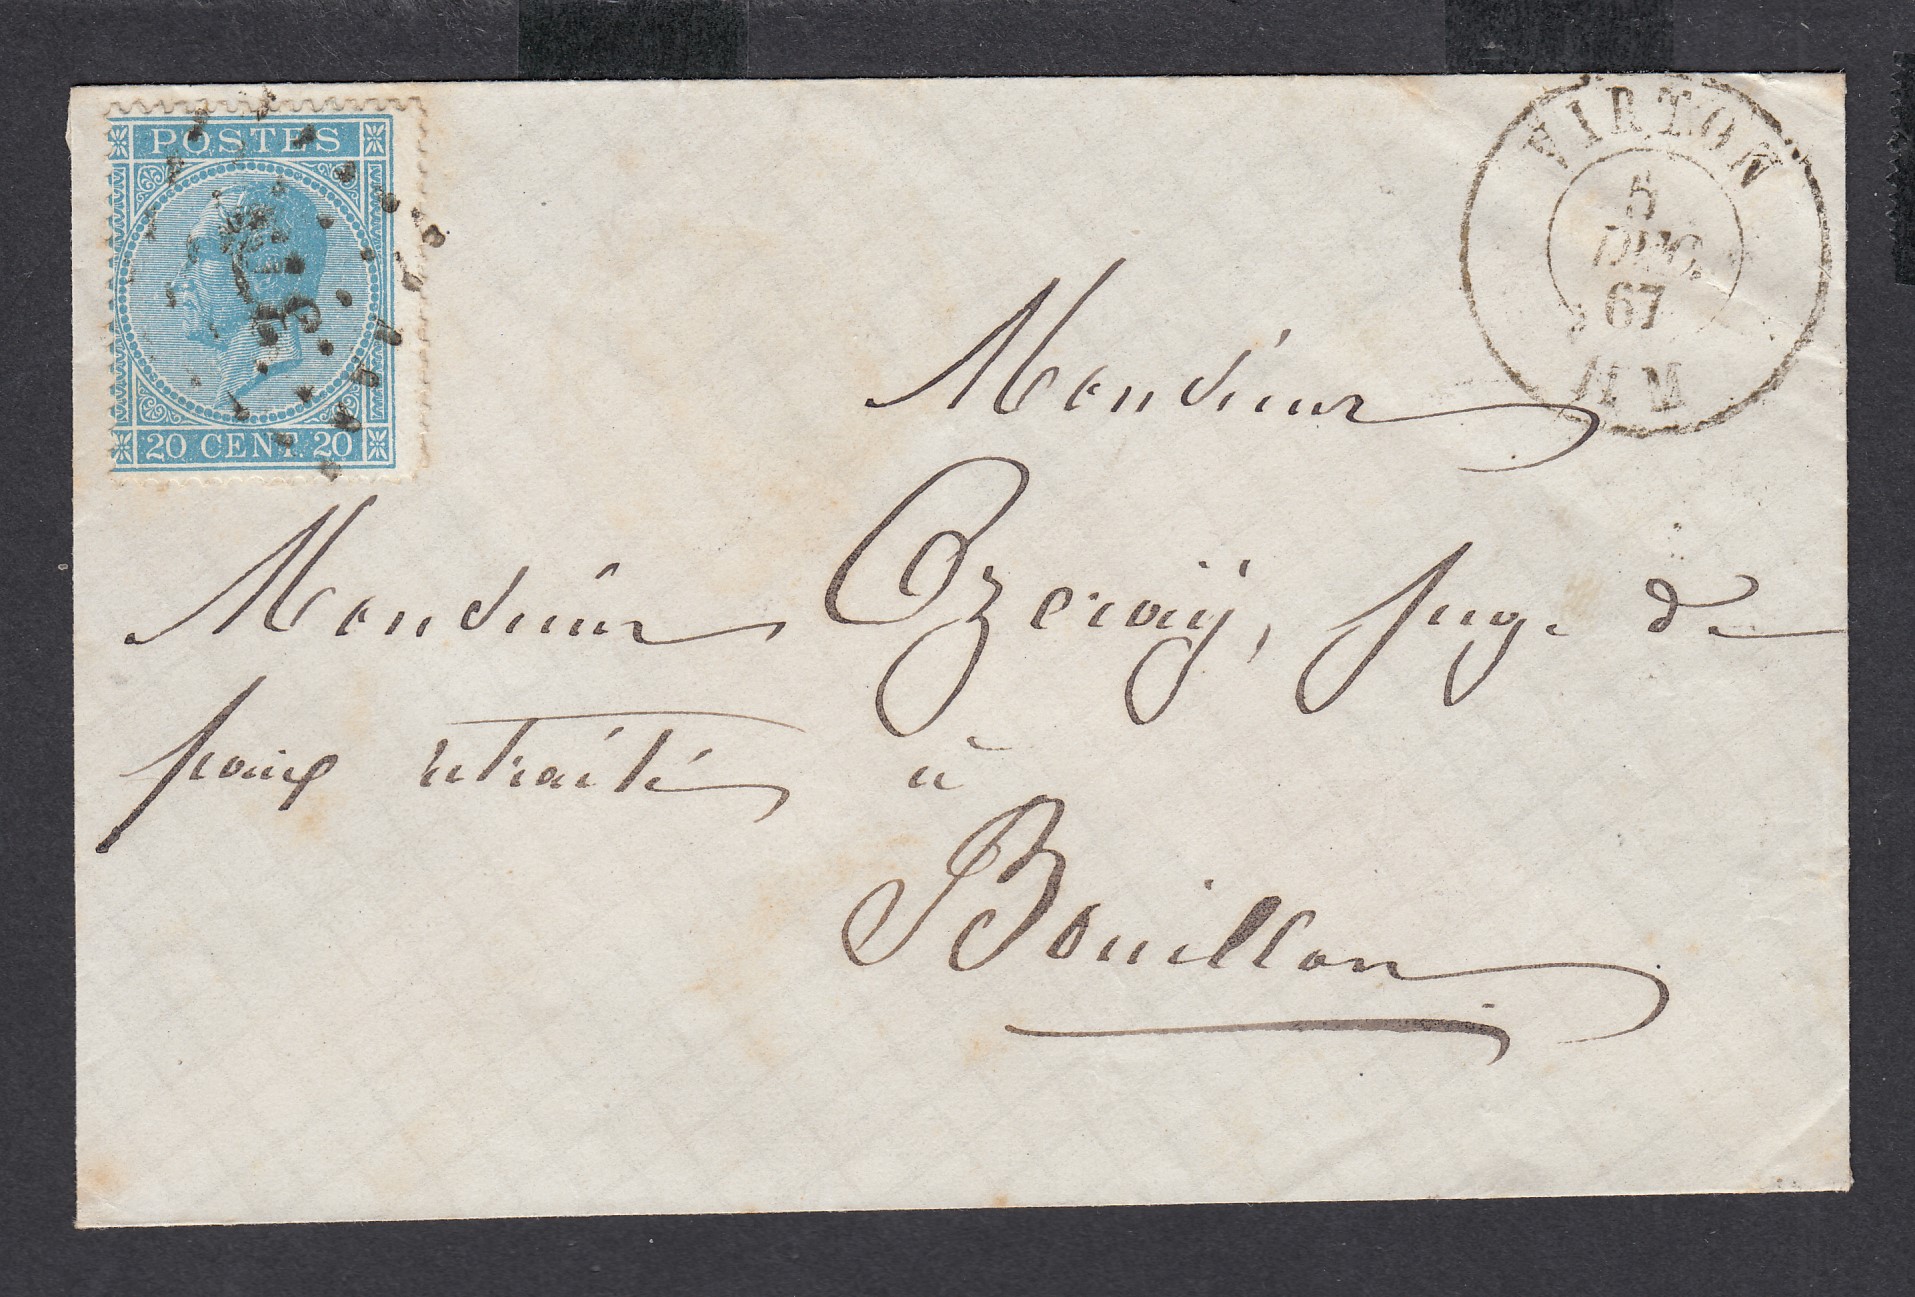 POSTES
20 CENT. 20
VIRTON
5
DEC.
67
Monsieur
Monsieur Ozeray, juge de
paix retraité à
Bouillon